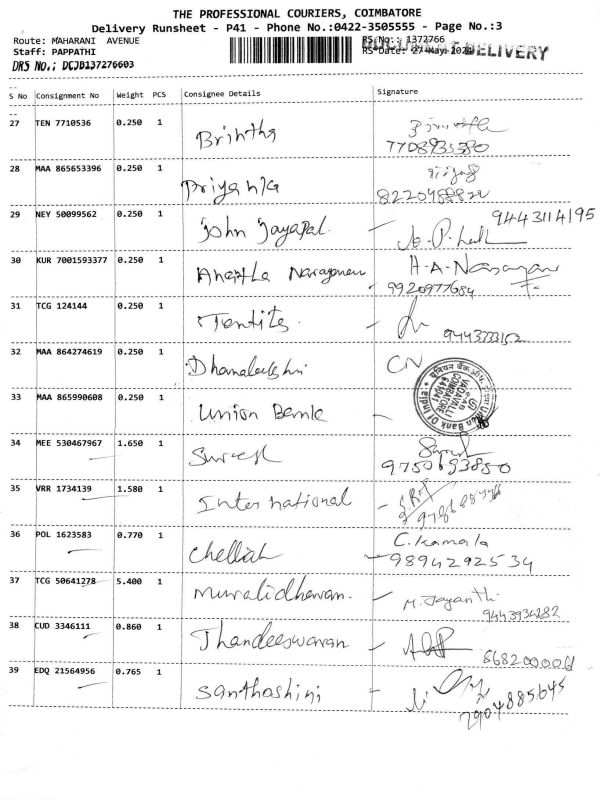 THE PROFESSIONAL COURIERS, COIMBATORE
Delivery Runsheet - P41 - Phone No.:0422-3505555 - Page No.:3
Route: MAHARANI AVENUE
RS No.: 1372766
Staff: PAPPATHI
RS Date: 27-May-
DELIVERY
DRS No.: DCJB137276603
S No Consignment No Weight PCS Consignee Details Signature
27 TEN 7710536 0.250 1 Brintha
28 MAA 865653396 0.250 1 Priyanka
29 NEY 50099562 0.250 1 John Jayapal 9443114195
30 KUR 7001593377 0.250 1 Narayanan H-A-Narayanan
9920977684
31 TCG 124144 0.250 1
32 MAA 864274619 0.250 1
33 MAA 865990608 0.250 1 Union Bank
34 MEE 530467967 1.650 1 Suresh Suresh
9750693850
35 VRR 1734139 1.580 1 International
36 POL 1623583 0.770 1 Chelliah C. Kamala
9894292534
37 TCG 50641278 5.400 1 Muralidharan M. Jayanthi
9443934282
38 CUD 3346111 0.860 1 Thandeeswaran
39 EDQ 21564956 0.765 1 Santhoshini
7904885645